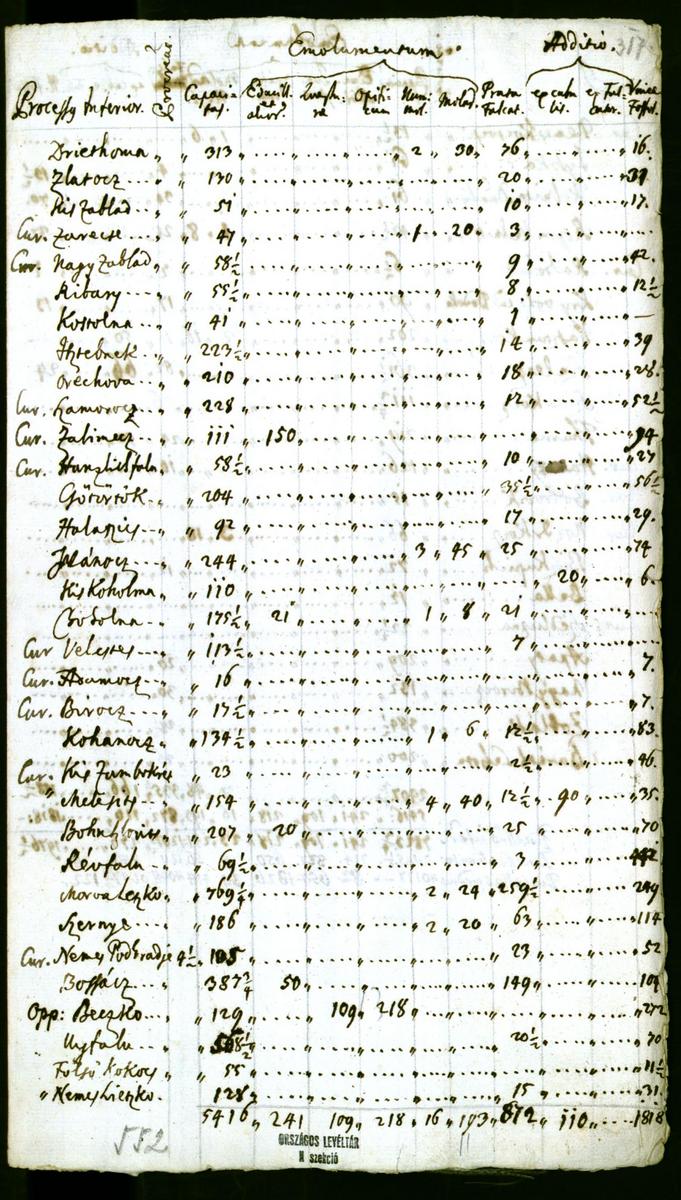 Emolumentum. Additio. 317.
Processus Inferior. Capacitas. Educill. et alior. Quaestu- Opifi- cium Num: mol. Molend. Prata Falcat. ex censu Vinea Fossor.
Driethoma „ 313 2 „ 30 „ 36 16.
Zlatocz „ 130 20 „ 39
Kis Zablad „ 51 10 „ 17.
Cur. Zarecse „ 47 1 „ 20 „ 3
Cur. Nagy Zablad „ 58½ 9 „ 42.
Ribary „ 55½ 8 „ 12½
Kostolna „ 41 1 „ —
Isztebnek „ 223½ 14 „ 39
Orechova „ 210 18 „ 28.
Cur. Hamorocz „ 228 12 „ 52½
Cur. Zalimecz „ 111 150 „ 94
Cur. Hanzlikfalu „ 58½ 10 „ 27
Götörtök „ 204 35½ 56½
Halaszis „ 92 17 „ 29.
Ivánocz „ 244 3 „ 45 „ 25 „ 74
Kis Koholma „ 110 20 „ 6
Bodolna „ 175½ 21 1 „ 8 „ 21
Cur Velcses „ 113½ 7
Cur. Adamocz „ 16 7.
Cur. Birocz „ 17½ 7.
Kohanocz „ 134½ 1 „ 6 „ 12½ 83.
Cur. Kis Zambokrét „ 23 2½ 46.
„ Melesits „ 154 4 „ 40 „ 12½ 90 „ 35.
Bohuszlovics „ 207 20 25 „ 70
Révfalu „ 69½ 3 442
Morva Leszko „ 769¼ 2 „ 24 „ 259½ 249
Szernye „ 186 2 „ 20 „ 63 114
Cur. Nemes Podhradje 4½ „ 105 23 „ 52
Bossácz „ 387¾ 50 149 „ 109
Opp: Beczko „ 129 109 „ 218 272
Ujfalu „ 20½ 70
Fölső Kokocs „ 55 11½
„ Nemes Lieszko „ 128 15 „ 31.
5416 „ 241 109 „ 218 „ 16 „ 193 „ 872 „ 110 1818
552
ORSZÁGOS LEVÉLTÁR
N szekció